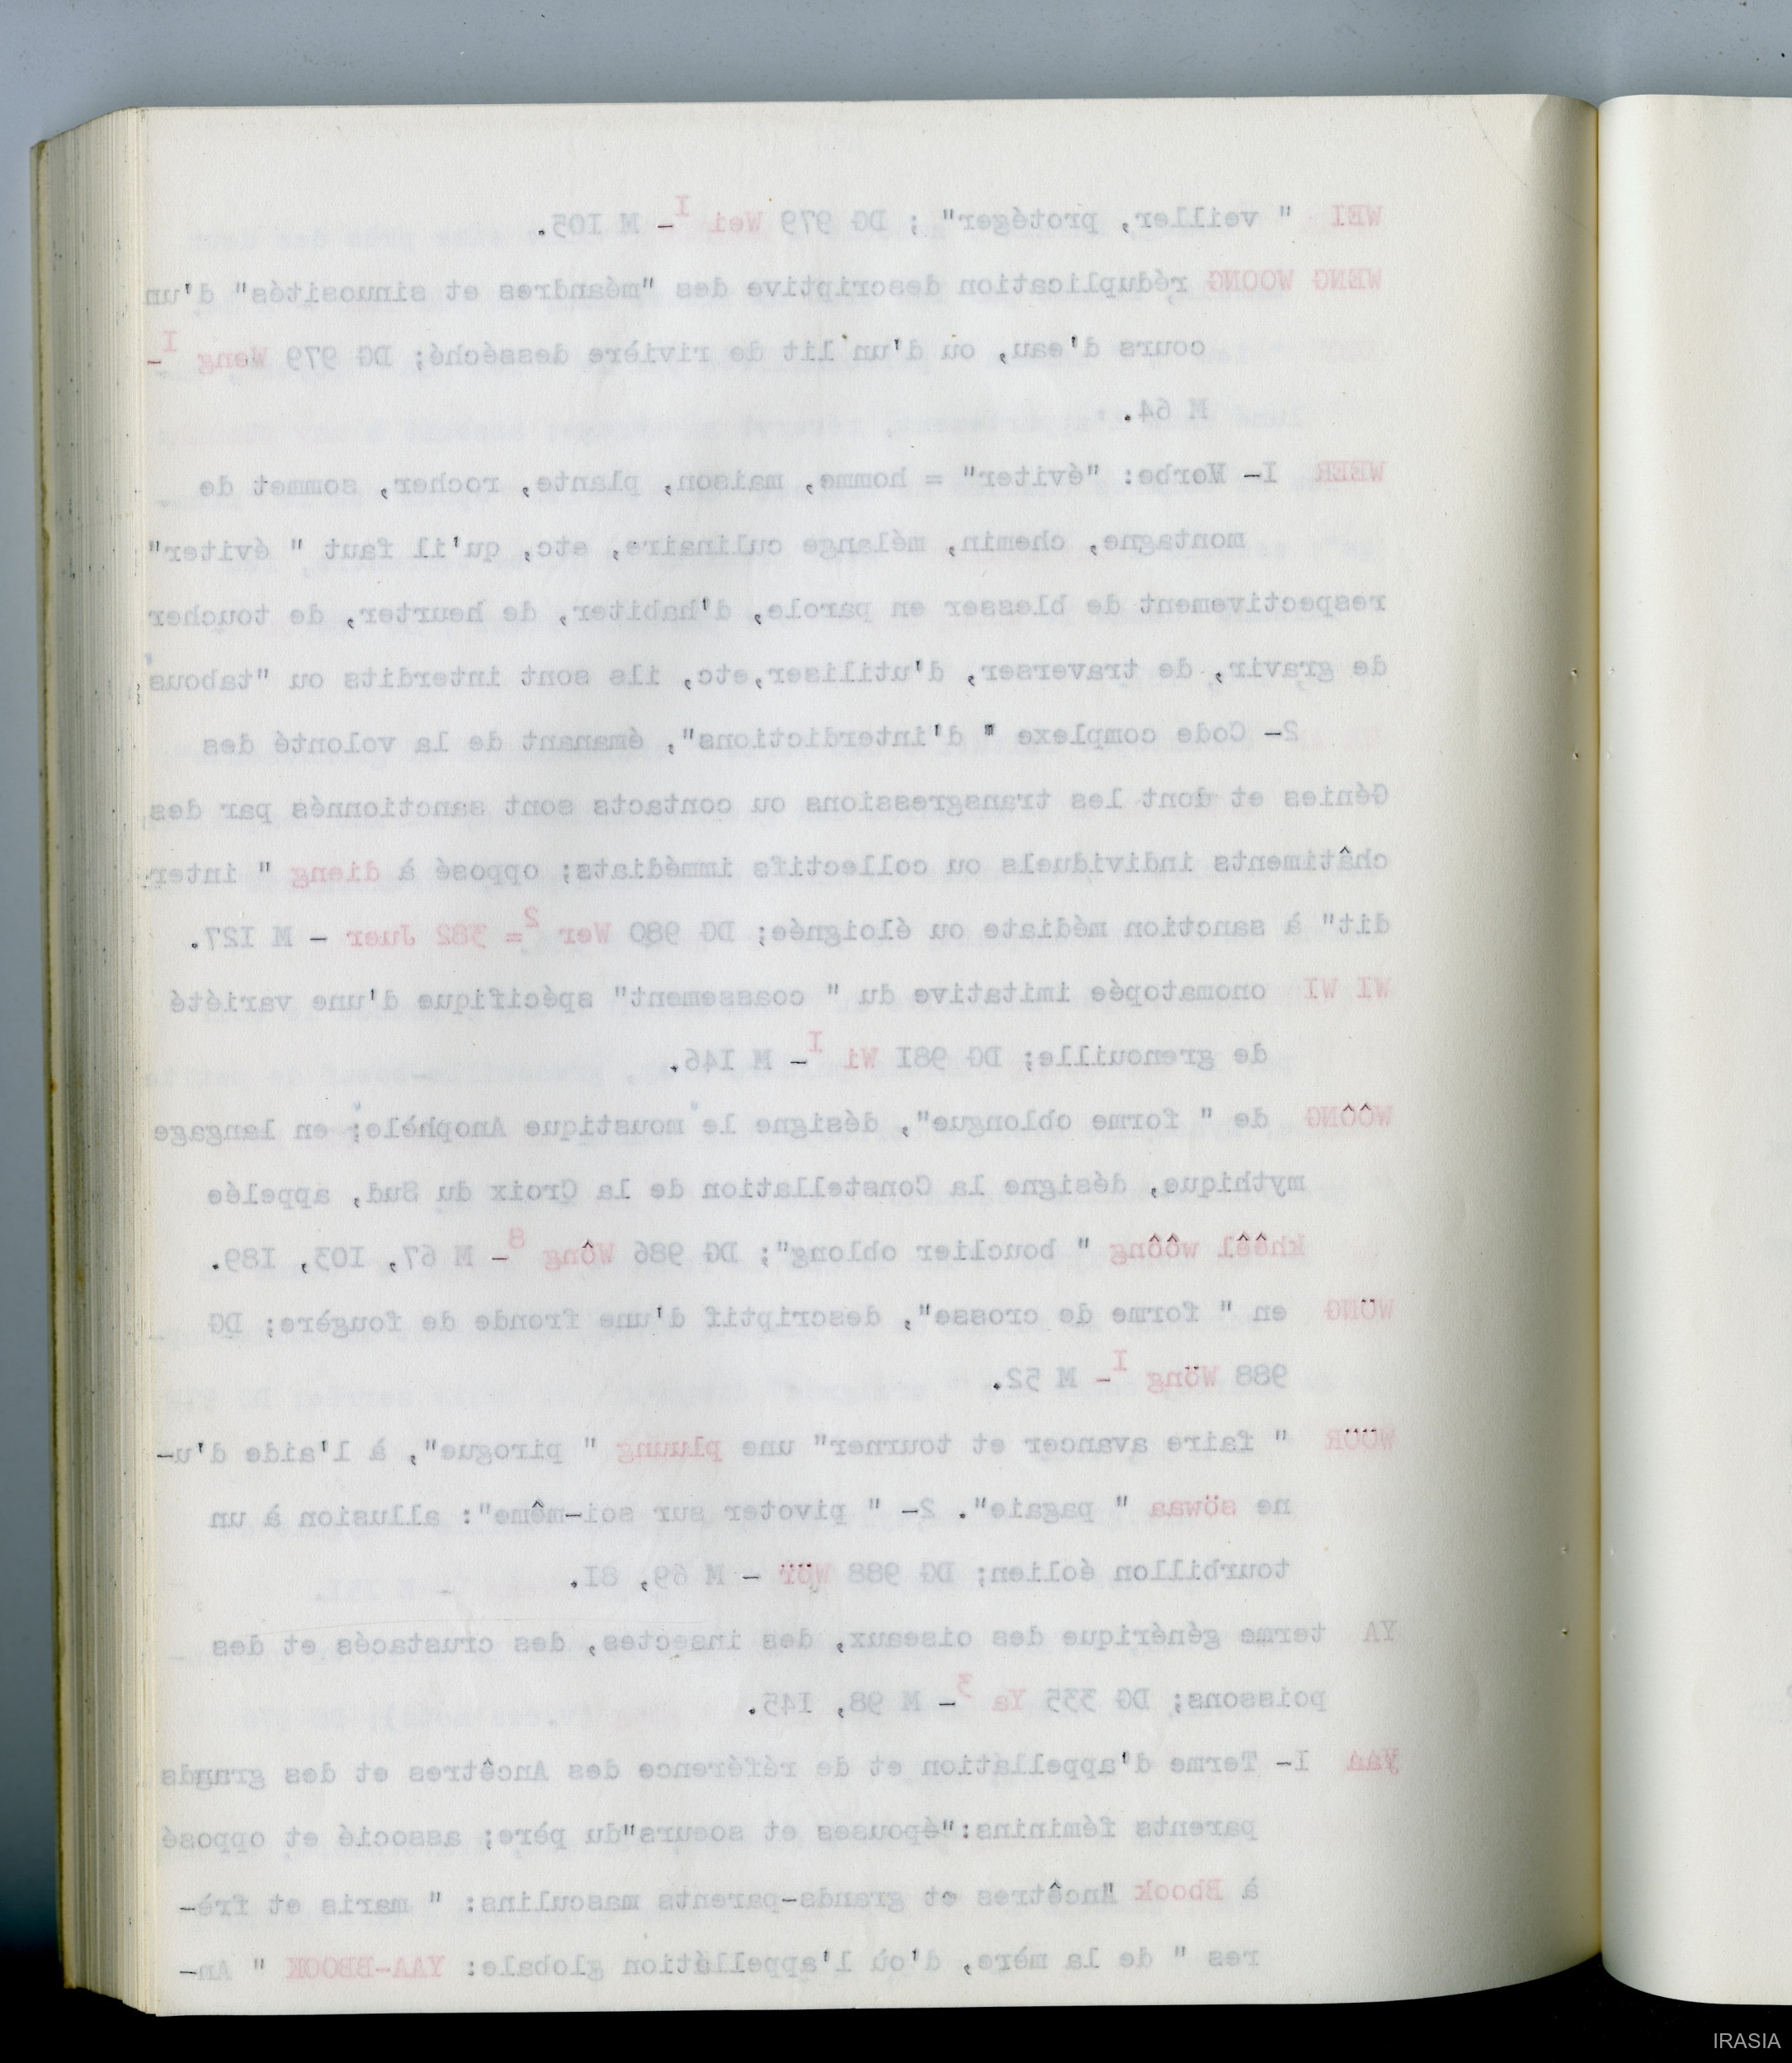 WEI " veiller, protéger" ; DG 979 Wei I- M I05.
WENG WOONG réduplication descriptive des "méandres et sinuosités" d'un
cours d'eau, ou d'un lit de rivière desséché; DG 979 Weng I-
M 64.
WEER I- Verbe: "éviter" = homme, maison, plante, rocher, sommet de
montagne, chemin, mélange culinaire, etc, qu'il faut " éviter"
respectivement de blesser en parole, d'habiter, de heurter, de toucher
de gravir, de traverser, d'utiliser,etc, ils sont interdits ou "tabous
2- Code complexe " d'interdictions", émanant de la volonté des
Génies et dont les transgressions ou contacts sont sanctionnés par des
châtiments individuels ou collectifs immédiats; opposé à dieng " inter-
dit" à sanction médiate ou éloignée; DG 980 Wer 2= 382 Juer - M I27.
WI WI onomatopée imitative du " coassement" spécifique d'une variété
de grenouille; DG 98I Wi I- M I46.
WÔÔNG de " forme oblongue", désigne le moustique Anophèle; en langage
mythique, désigne la Constellation de la Croix du Sud, appelée
khêêl wôông " bouclier oblong"; DG 986 Wông 8- M 67, I03, I89.
WÖNG en " forme de crosse", descriptif d'une fronde de fougère; DG
988 Wöng I- M 52.
WÖÖR " faire avancer et tourner" une pluung " pirogue", à l'aide d'u-
ne söwaa " pagaie". 2- " pivoter sur soi-même": allusion à un
tourbillon éolien; DG 988 Wör - M 69, 8I.
YA terme générique des oiseaux, des insectes, des crustacés et des
poissons; DG 335 Ya 3- M 98, I45.
Yaa I- Terme d'appellation et de référence des Ancêtres et des grands
parents féminins:"épouses et soeurs"du père; associé et opposé
à Bbook "Ancêtres et grands-parents masculins: " maris et frè-
res " de la mère, d'où l'appellation globale: YAA-BBOOK " An-
IRASIA